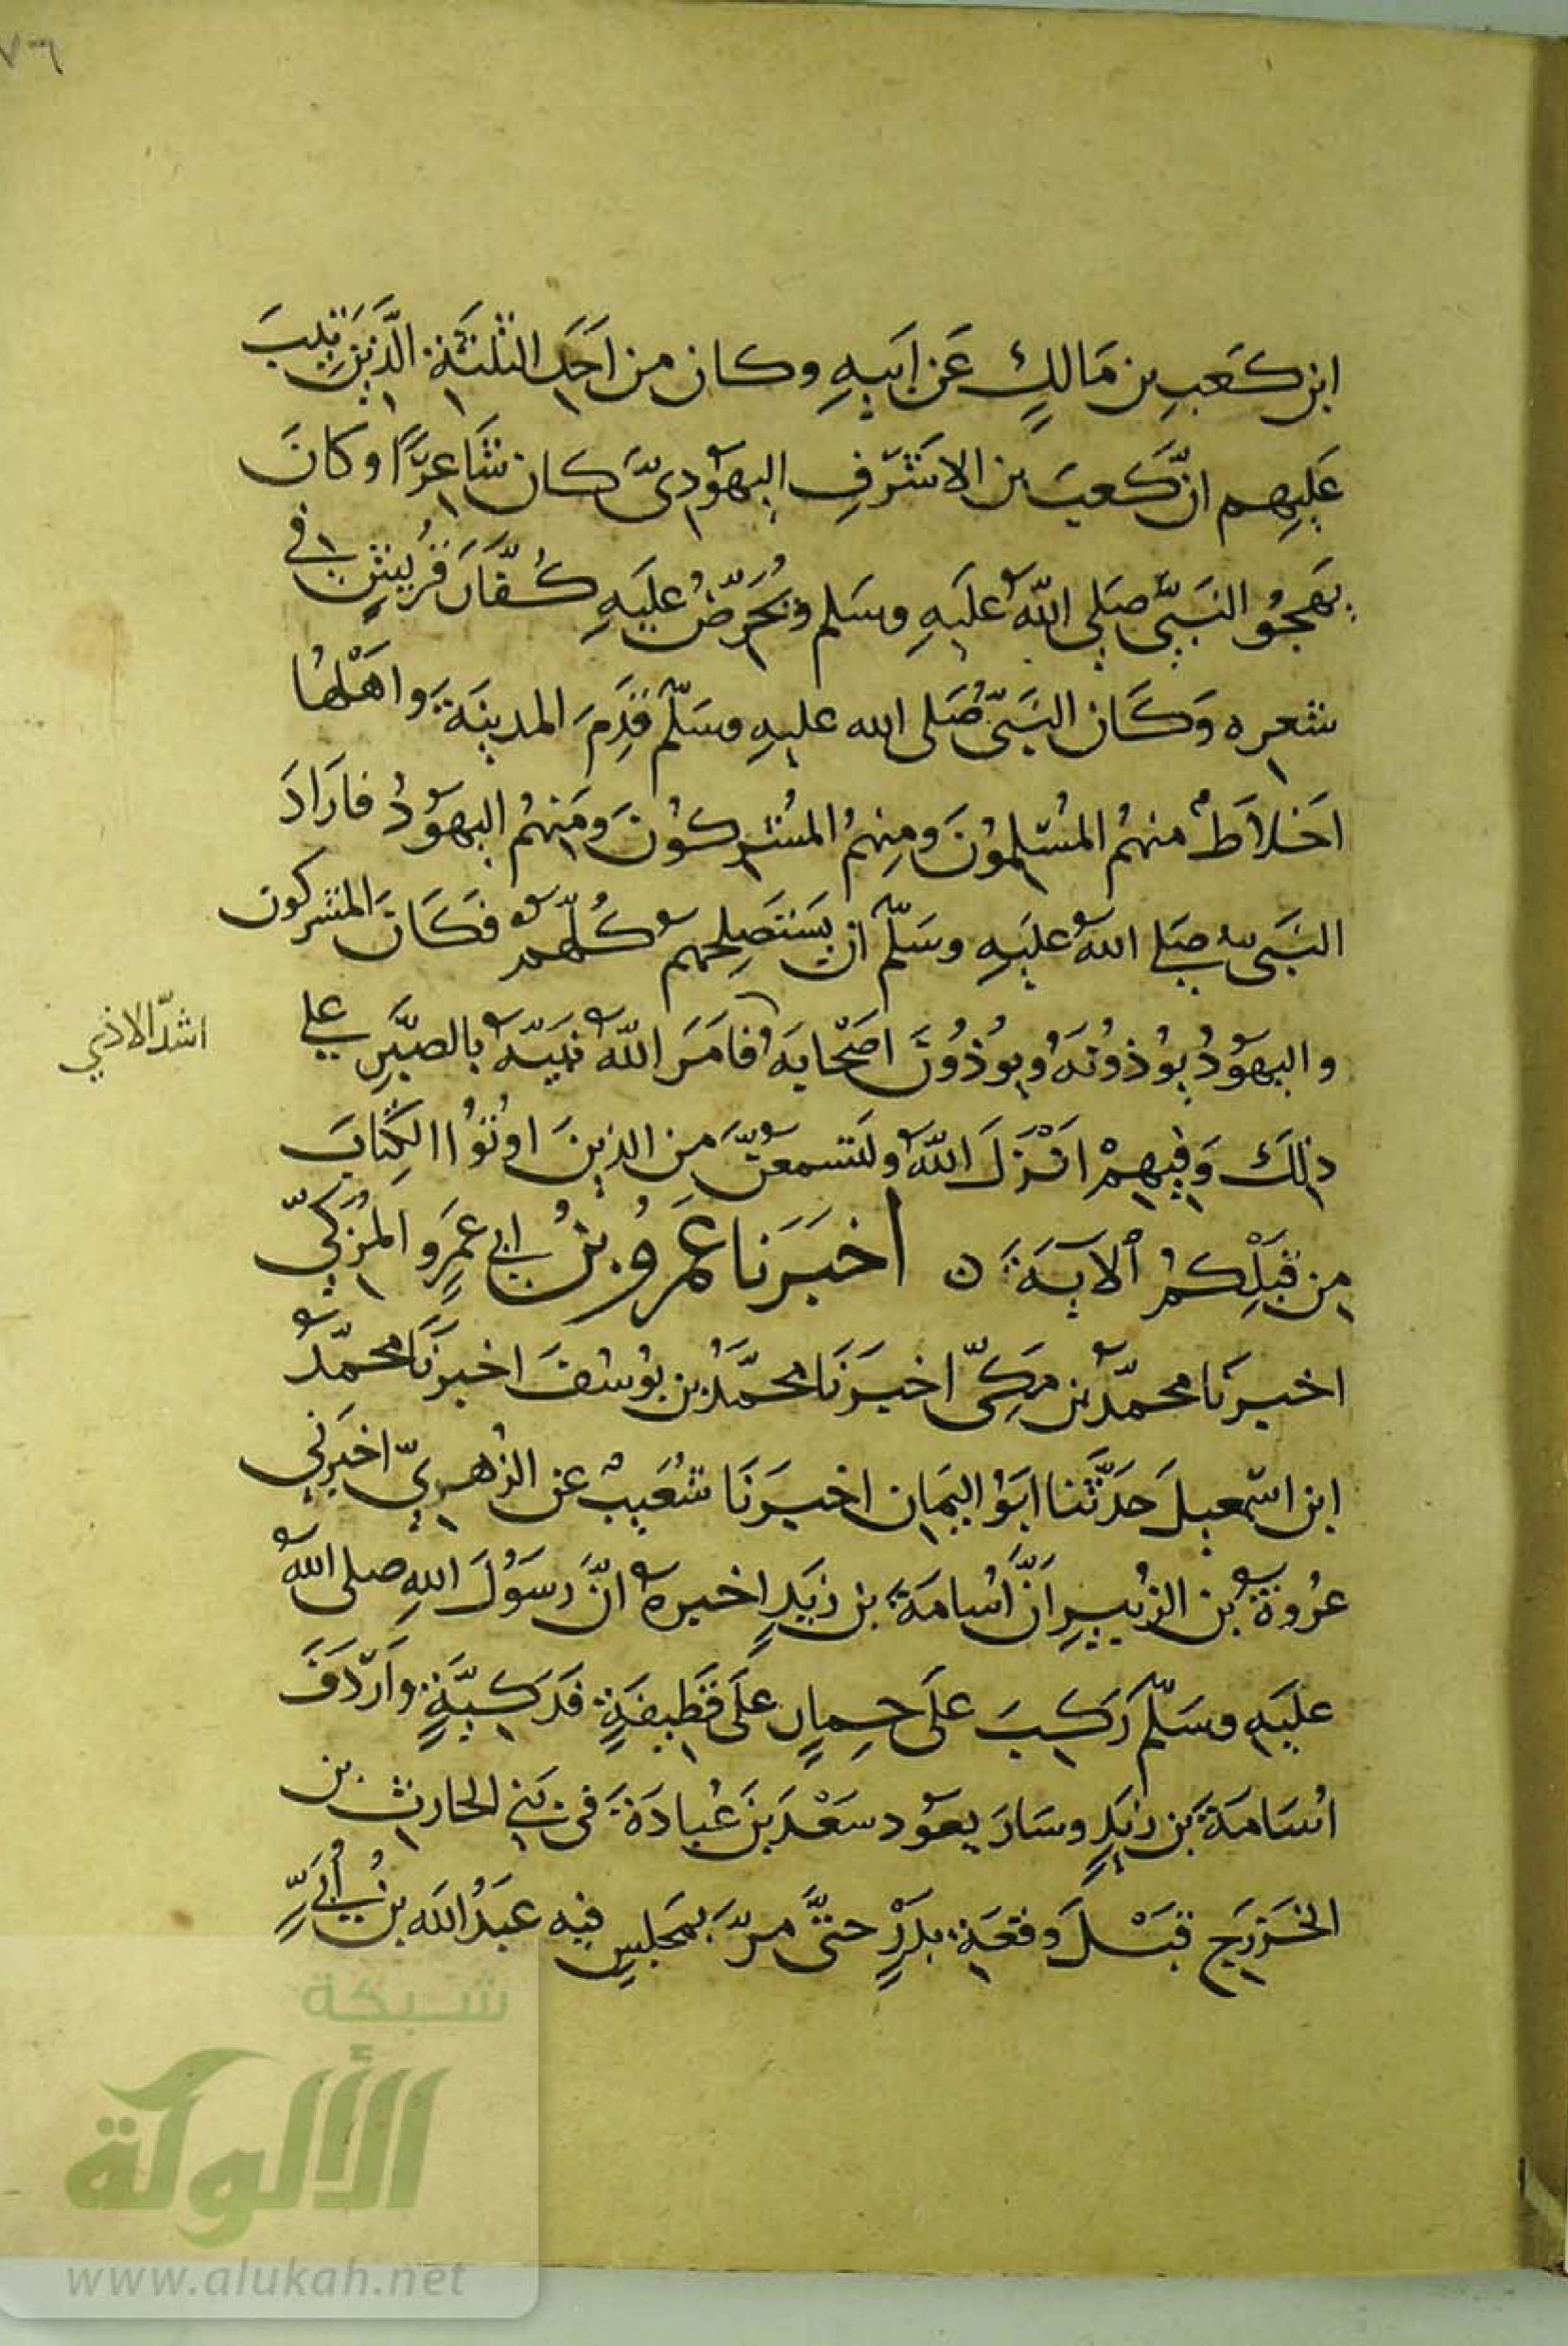 ٧٦
ابن كعب بن مالك عن ابيه وكان من احد الثلثة الذين تيب
عليهم ان كعب بن الاشرف اليهودي كان شاعرا وكان
يهجو النبي صلى الله عليه وسلم ويحرض عليه كفار قريش في
شعره وكان النبي صلى الله عليه وسلم قدم المدينة واهلها
اخلاط منهم المسلمون ومنهم المشركون ومنهم اليهود فاراد
النبي صلى الله عليه وسلم ان يستصلحهم كلهم فكان المشركون
واليهود يؤذونه ويؤذون اصحابه فامر الله نبيه بالصبر على
اشد الاذي
ذلك وفيهم انزل الله ولتسمعن من الذين اوتوا الكتاب
من قبلكم الآية ن اخبرنا عمرو بن ابي عمرو المزكي
اخبرنا محمد بن مكي اخبرنا محمد بن يوسف اخبرنا محمد
ابن اسمعيل حدثنا ابو اليمان اخبرنا شعيب عن الزهري اخبرني
عروة بن الزبير ان اسامة بن زيد اخبره ان رسول الله صلى الله
عليه وسلم ركب على حمار على قطيفة فدكية واردف
اسامة بن زيد وسار يعود سعد بن عبادة في بني الحارث بن
الخزرج قبل وقعة بدر حتى مر بمجلس فيه عبد الله بن أبي
شبكة
الألوكة
www.alukah.net